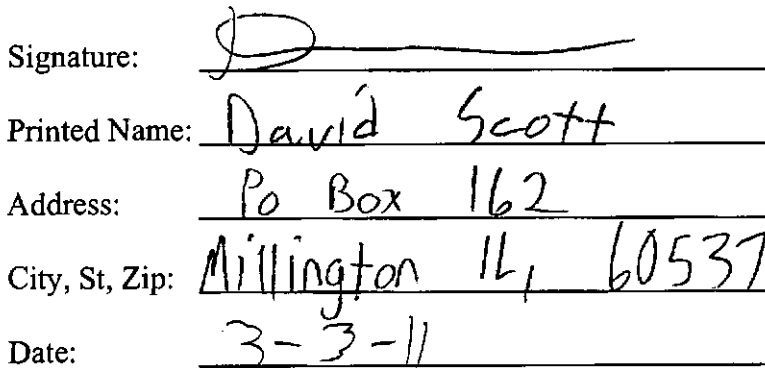 Signature:
Printed Name: David Scott
Address: Po Box 162
City, St, Zip: Millington IL, 60537
Date: 3-3-11